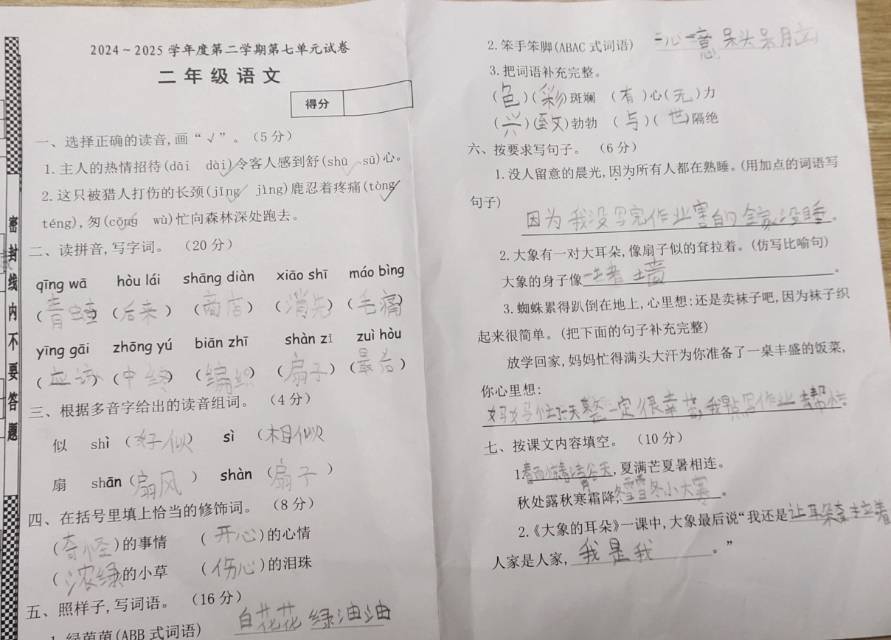 2024～2025学年度第二学期第七单元试卷
二年级语文
得分
密封线内不要答题
一、选择正确的读音,画“√”。(5分)
1.主人的热情招待(dāi dài)令客人感到舒(shū sū)心。
2.这只被猎人打伤的长颈(jǐng jìng)鹿忍着疼痛(tòng
téng),匆(cōng wù)忙向森林深处跑去。
二、读拼音,写字词。(20分)
qīng wā hòu lái shāng diàn xiāo shī máo bìng
(青蛙)(后来)(商店)(消失)(毛病)
yīng gāi zhōng yú biān zhī shàn zi zuì hòu
(应该)(中终)(编织)(扇子)(最后)
三、根据多音字给出的读音组词。(4分)
似 shì(好似) sì(相似)
扇 shān(扇风) shàn(扇子)
四、在括号里填上恰当的修饰词。(8分)
(奇怪)的事情 (开心)的心情
(浓绿)的小草 (伤心)的泪珠
五、照样子,写词语。(16分)
1.绿茵茵(ABB式词语) 白花花 绿油油
2.笨手笨脚(ABAC式词语) 一心一意 呆头呆脑
3.把词语补充完整。
(色)(彩)斑斓 (有)心(无)力
(兴)(致)勃勃 (与)(世)隔绝
六、按要求写句子。(6分)
1.没人留意的晨光,因为所有人都在熟睡。(用加点的词语写
句子)
因为我没写完作业害的全家没睡。
2.大象有一对大耳朵,像扇子似的耷拉着。(仿写比喻句)
大象的身子像一堵墙。
3.蜘蛛累得趴倒在地上,心里想:还是卖袜子吧,因为袜子织
起来很简单。(把下面的句子补充完整)
放学回家,妈妈忙得满头大汗为你准备了一桌丰盛的饭菜,
你心里想:
一定很辛苦,我
七、按课文内容填空。(10分)
1.春雨惊春清谷天,夏满芒夏暑相连。
秋处露秋寒霜降,冬雪雪冬小大寒。
2.《大象的耳朵》一课中,大象最后说“我还是让耳朵耷拉着
人家是人家,我是我。”